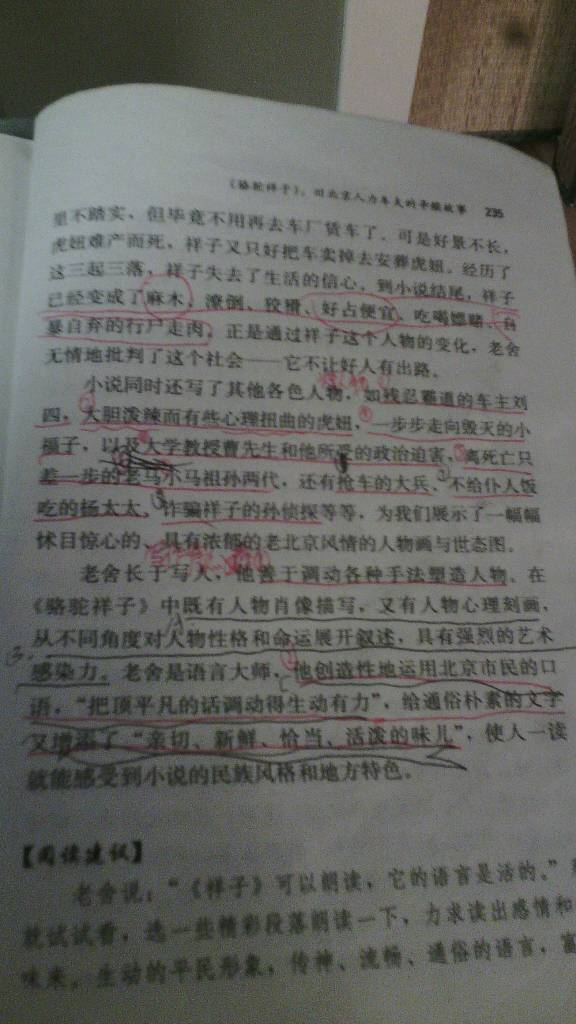 《骆驼祥子》：旧北京人力车夫的辛酸故事 235
里不踏实，但毕竟不用再去车厂赁车了。可是好景不长，
虎妞难产而死，祥子又只好把车卖掉去安葬虎妞。经历了
这三起三落，祥子失去了生活的信心。到小说结尾，祥子
已经变成了麻木、潦倒、狡猾、好占便宜、吃喝嫖赌、自
暴自弃的行尸走肉。正是通过祥子这个人物的变化，老舍
无情地批判了这个社会——它不让好人有出路。
小说同时还写了其他各色人物，如残忍霸道的车主刘
四，大胆泼辣而有些心理扭曲的虎妞，一步步走向毁灭的小
福子，以及大学教授曹先生和他所受的政治迫害，离死亡只
差一步的老马小马祖孙两代，还有抢车的大兵、不给仆人饭
吃的杨太太、诈骗祥子的孙侦探等等，为我们展示了一幅幅
怵目惊心的、具有浓郁的老北京风情的人物画与世态图。
老舍长于写人，他善于调动各种手法塑造人物。在
《骆驼祥子》中既有人物肖像描写，又有人物心理刻画，
从不同角度对人物性格和命运展开叙述，具有强烈的艺术
感染力。老舍是语言大师，他创造性地运用北京市民的口
语，“把顶平凡的话调动得生动有力”，给通俗朴素的文字
又增添了“亲切、新鲜、恰当、活泼的味儿”，使人一读
就能感受到小说的民族风格和地方特色。
【阅读建议】
老舍说：“《祥子》可以朗读，它的语言是活的。”
就试试看，选一些精彩段落朗读一下，力求读出感情和
味来。生动的平民形象，传神、流畅、通俗的语言，富